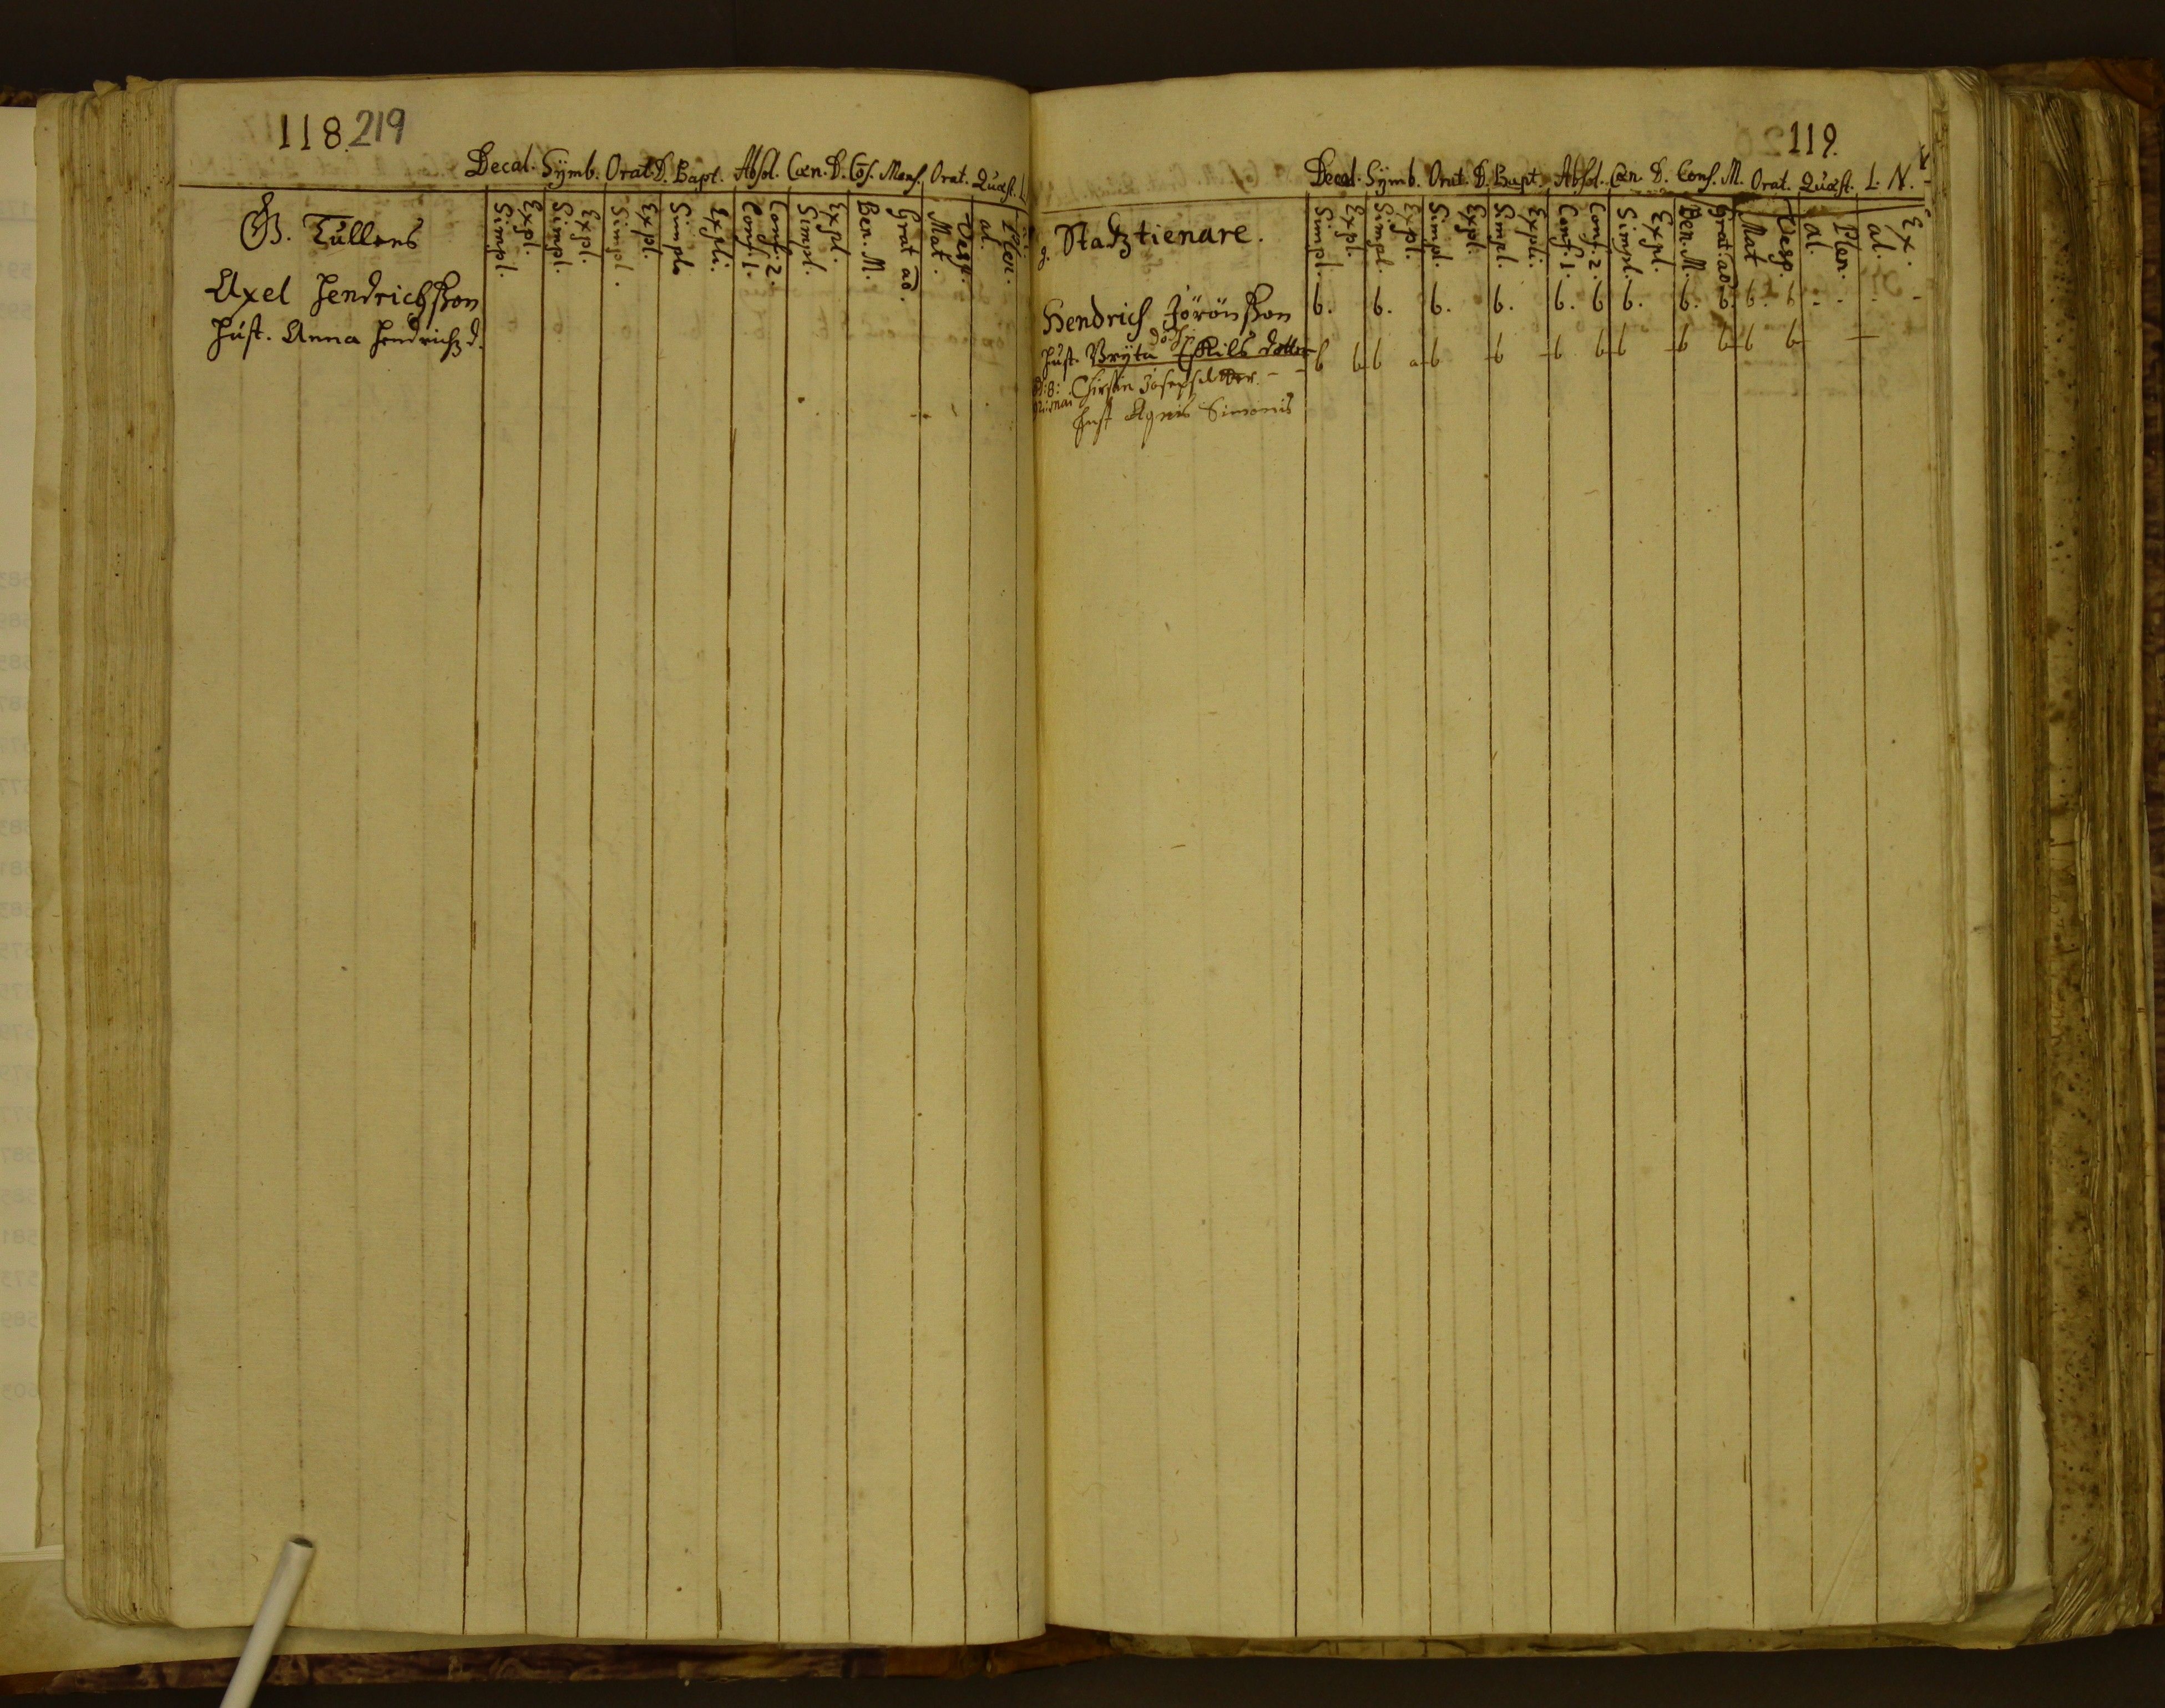 118. 219
Decal. Sÿmb. Orat. D. Bapt. Absol. Cœn. D. Cōf. Mens. Orat. Quæst. L.
Simpl. Expl. Simpl. Expl. Simpl. Expl. Simpl. Expli. Conf. 1. Conf. 2. Simpl. Expl. Ben. M. Grat. ac. Mat. Vesp. al. Plen.
B. Tullens
Axel Hendrichsson
Hust. Anna Hendrichz d.
119.
Decal. Sÿmb. Orat. D. Bapt. Absol. Cœn. D. Conf. M. Orat. Quæst. L. N.
Simpl. Expl. Simpl. Expl. Simpl. Expl. Simpl. Expli. Conf. 1. Conf. 2 Simpl. Expl. Ben. M. Grat. ac. Mat Vesp. al. Plen. al. Ex.
Statz tienare.
Hendrich Jörönsson b. b. b. b. b. b b. b. b. b - b - - - -
död
Hust. Brÿta Eskils dotter b b b a b b b b b b b b b
Chirstin Josephsdotter
Hust Agnis Simonis